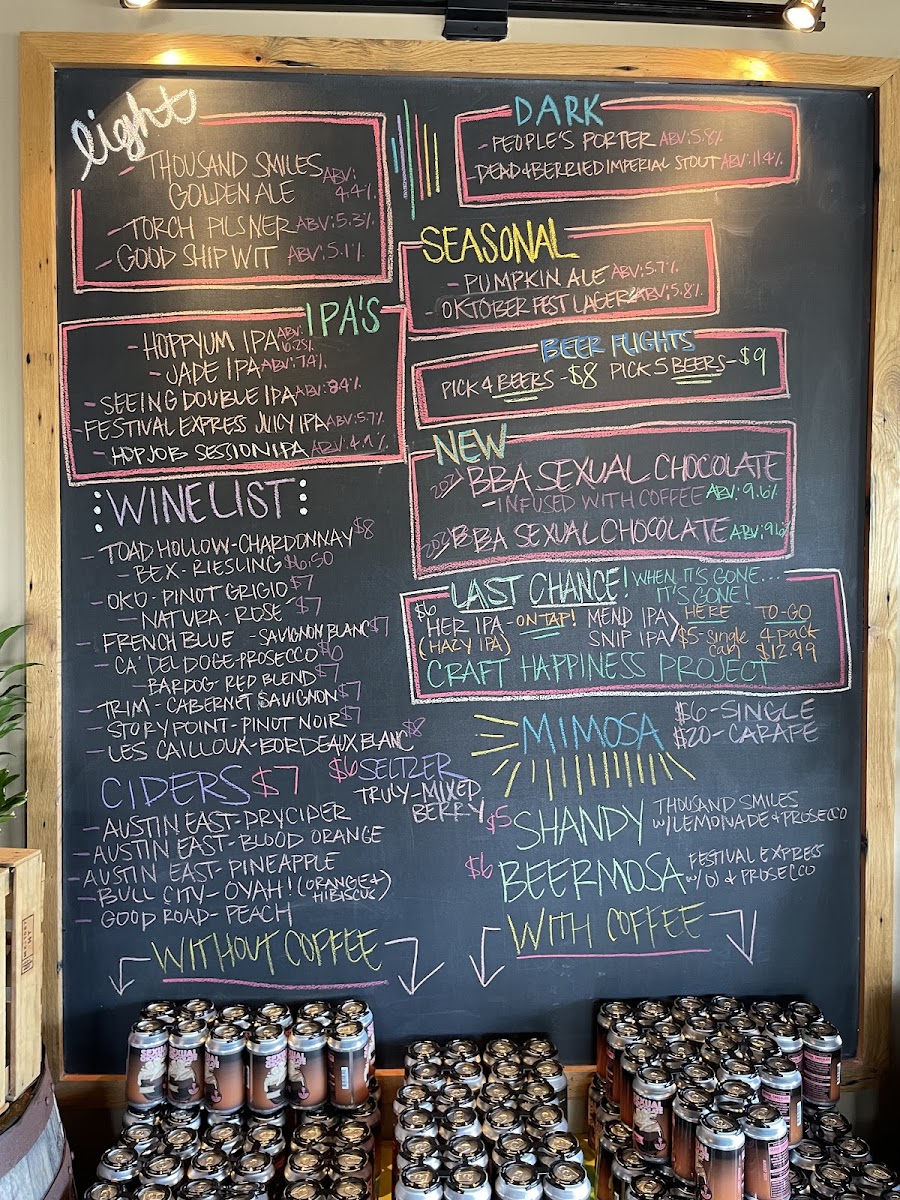 light
- THOUSAND SMILES
GOLDEN ALE ABV: 4.4%
- TORCH PILSNER ABV: 5.3%
- GOOD SHIP WIT ABV: 5.1%
IPA'S
- HOPPYUM IPA ABV: 6.25%
- JADE IPA ABV: 7.4%
- SEEING DOUBLE IPA ABV: 8.4%
- FESTIVAL EXPRESS JUICY IPA ABV: 5.7%
- HOP JOB SESSION IPA
WINE LIST
- TOAD HOLLOW - CHARDONNAY $8
- BEX - RIESLING $6.50
- OKO - PINOT GRIGIO $7
- NATURA - ROSE $7
- FRENCH BLUE - SAVIGNON BLANC $7
- CA' DEL DOGE - PROSECCO $6
- BARDOG - RED BLEND $7
- TRIM - CABERNET SAUVIGNON $7
- STORYPOINT - PINOT NOIR $7
- LES CAILLOUX - BORDEAUX BLANC $8
CIDERS $7
- AUSTIN EAST - DRY CIDER
- AUSTIN EAST - BLOOD ORANGE
- AUSTIN EAST - PINEAPPLE
- BULL CITY - OYAH! (ORANGE & HIBISCUS)
- GOOD ROAD - PEACH
$6 SELTZER
TRULY - MIXED
BERRY
WITHOUT COFFEE
DARK
- PEOPLE'S PORTER ABV: 5.8%
- DEAD & BERRIED IMPERIAL STOUT ABV: 11.4%
SEASONAL
- PUMPKIN ALE ABV: 5.7%
- OKTOBERFEST LAGER ABV: 5.8%
BEER FLIGHTS
PICK 4 BEERS - $8 PICK 5 BEERS - $9
NEW
2021 BBA SEXUAL CHOCOLATE
- INFUSED WITH COFFEE ABV: 9.6%
BBA SEXUAL CHOCOLATE ABV: 9.6%
LAST CHANCE! WHEN IT'S GONE...
IT'S GONE!
$6 HER IPA - ON TAP! MEND IPA HERE TO-GO
(HAZY IPA) SNIP IPA $5 - single can 4 pack $12.99
CRAFT HAPPINESS PROJECT
MIMOSA $6 - SINGLE
$20 - CARAFE
$5 SHANDY THOUSAND SMILES
W/ LEMONADE & PROSECCO
$6 BEERMOSA FESTIVAL EXPRESS
W/ OJ & PROSECCO
WITH COFFEE
SEXUAL